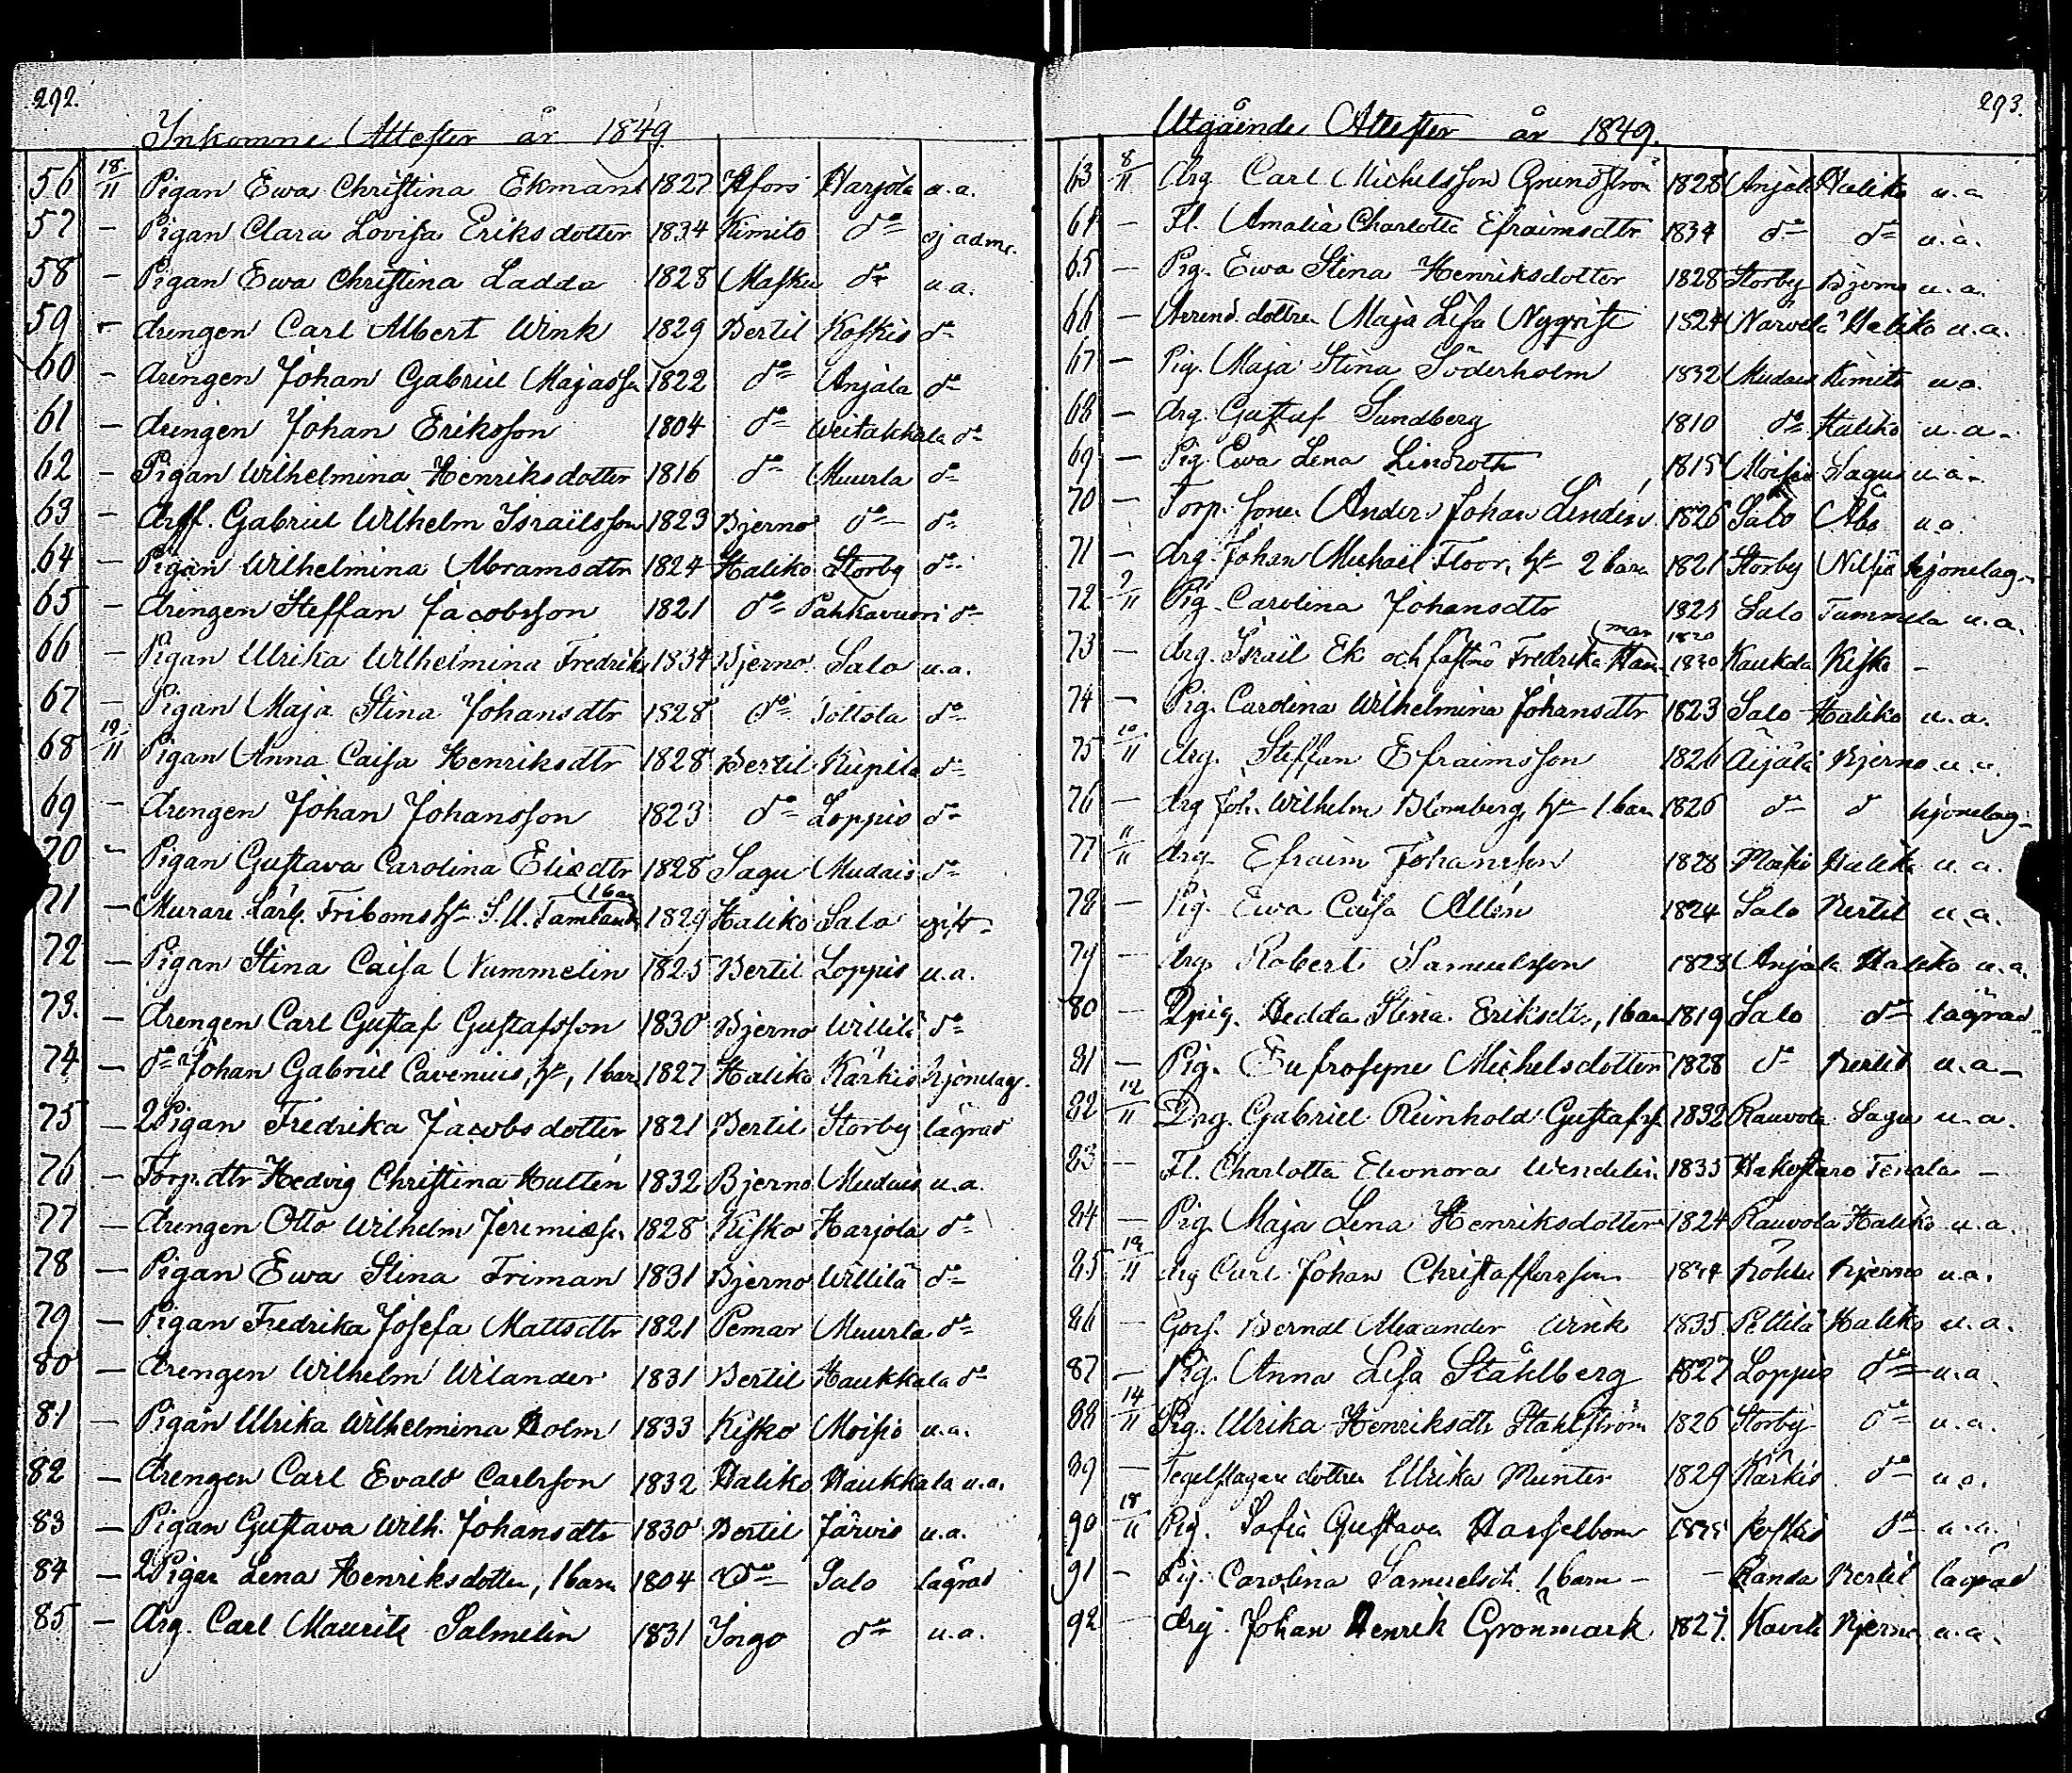 292.
Inkomne Attester år 1849.
56 18/11 Pigan Ewa Christina Ekman 1827 Hfors Harjola u.a.
57 — Pigan Clara Lovisa Eriksdotter 1834 Kimito do ej adm.
58 — Pigan Ewa Christina Ladda 1828 Masku do u.a.
59 — drengen Carl Albert Wink 1829 Bertil Koskis do
60 — drengen Johan Gabriel Majass. 1822 do Anjala do
61 — drengen Johan Eriksson 1804 do Weitakkala do
62 — Pigan Wilhelmina Henriksdotter 1816 do Muurla do
63 — Gabriel Wilhelm Israilsson 1823 Bjerno do do
64 — Pigan Wilhelmina Abramsdtr 1824 Haliko Storby do
65 — drengen Steffan Jacobsson 1821 do Pahkavuori do
66 — Pigan Ulrika Wilhelmina Fredriks 1834 Bjerno Salo u.a.
67 — Pigan Maja Stina Johansdtr 1828 do do
68 19/11 Pigan Anna Caisa Henriksdtr 1828 Bertil Kupila do
69 — drengen Johan Johansson 1823 do Loppis do
70 — Pigan Gustava Carolina Eliedtr 1828 Sagu Mudais do
71 — Murare Lärl. Friboms hu S. U. Tamland 1 barn 1829 Haliko Salo gift
72 — Pigan Stina Caisa Nummelin 1825 Bertil Loppis u.a.
73. — drengen Carl Gustaf Gustafsson 1830 Bjerno Willilä do
74 — do Johan Gabriel Cavenius, hu, 1 barn 1827 Haliko Kärkis hjonelag.
75 — 2Pigan Fredrika Jacobsdotter 1821 Bertil Storby lägrad
76 — Torp.dtr Hedvig Christina Hultén 1832 Bjerno Mudais u.a.
77 — drengen Otto Wilhelm Jeremiass. 1828 Kisko Harjola do
78 — Pigan Ewa Stina Friman 1831 Bjerno Willilä do
79 — Pigan Fredrika Josefa Mattsdtr 1821 Pemar Muurla do
80 — drengen Wilhelm Wilander 1831 Bertil Haukkala do
81 — Pigan Ulrika Wilhelmina Holm 1833 Kisko Moisio u.a.
82 — drengen Carl Evald Carlsson 1832 Haliko Haukkala u.a.
83 — Pigan Gustava Wilh. Johansdtr 1830 Bertil Järvis u.a.
84 — 2Pigan Lena Henriksdotter, 1 barn 1804 do Salo lägrad
85 — drg. Carl Mauritz Salmelin 1831 Ingo do u.a.
293.
Utgående Attester år 1849.
63 8/11 drg Carl Michelsson Grundström 1828 Anjala Haliko u.a
64 — Fl. Amalia Charlotta Efraimsdtr 1834 do do u.a.
65 — Pig. Ewa Stina Henriksdotter 1828 Storby Bjerno u.a.
66 — Arrend. dottren Maja Lisa Nyqvist 1824 Narvela Haliko u.a.
67 — Pig. Maja Stina Söderholm 1832 Mudais Kimito u.a.
68 — drg. Gustaf Sundberg 1810 do Haliko u.a.
69 — Pig. Ewa Lena Lindroth 1815 Moisio Sagu u.a.
70 — Torp. sonen Ander Johan Lindén 1826 Salo Åbo u.a.
71 — drg. Johan Michaël Floor, hu 2 barn 1821 Storby hjonelag
72 9/11 Pig. Carolina Johansdtr Salo Tammela u.a.
73 — drg. Israil Ek och fästmö Fredrika 1820 1830 Kaukola Kisko —
74 — Pig. Carolina Wilhelmina Johansdtr 1823 Salo Haliko u.a.
75 10/11 drg. Steffan Efraimsson 1826 Äijälä Bjerno u.a.
76 — drg Joh. Wilhelm Blomberg, hu 1 barn 1826 do do hjonelag
77 11/11 drg. Efraim Johansson 1828 Haliko u.a.
78 — Pig. Ewa Caisa Allén 1824 Salo Bertil u.a.
79 — drg. Robert Samuelsson 1823 Anjala Haliko u.a.
80 — 2pig. Hedda Stina Eriksdtr, 1 barn 1819 Salo do lägrad
81 — Pig. Eufrosyne Michelsdotter 1828 do Bertil u.a
82 12/11 Drg. Gabriel Reinhold Gustafs. 1832 Rauvola Sagu u.a.
83 — Fl. Charlotta Eleonora Wendelin 1835 Hakostaro Tenala —
84 — Pig. Maja Lena Henriksdotter 1824 Rauvola Haliko u.a.
85 /11 drg Carl Johan Christaffersson Bjerno u.a.
86 — Gos. Berndt Alexander Wink 1835 Pettilä Haliko u.a.
87 — Pig. Anna Lisa Ståhlberg 1827 Loppis do u.a.
88 14/11 Pig. Ulrika Henriksdtr Stahlström 1826 Storby do u.a.
89 — Tegelslagare dottren Ulrika Munter 1829 Kärkis do u.a.
90 18/11 Pig. Sofia Gustava Hasselbom Koskis do u.a.
91 — Pig. Carolina Samuelsdt. 1 barn — — Randa Bertil lägrad
92 — drg. Johan Henrik Grönmark 1827. Bjerno u.a.